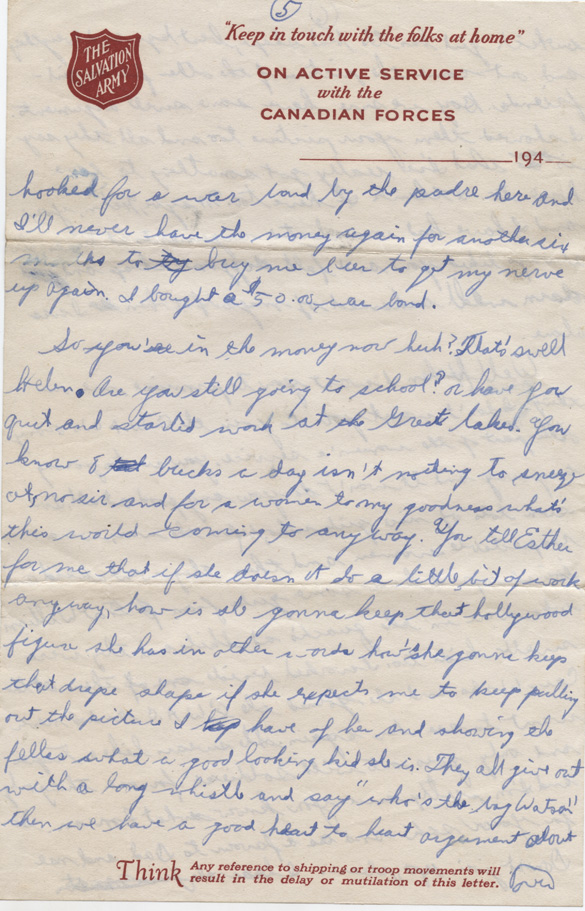 5
THE
SALVATION
ARMY
"Keep in touch with the folks at home"
ON ACTIVE SERVICE
with the
CANADIAN FORCES
194
hooked for a war bond by the padre here and
I'll never have the money again for another six
months to try buy me beer to get my nerve
up again. I bought a $50.00 war bond.
So you're in the money now huh? That's swell
Helen. Are you still going to school? or have you
quit and started work at the Great lakes. You
know 8 bucks a day isn't nothing to sneeze
at, no sir and for a women to my goodness what's
this world coming to anyway. You tell Esther
for me that if she doesn't do a little bit of work
anyway, how is she gonna keep that hollywood
figure she has in other words how's she gonna keep
that drape shape if she expects me to keep pulling
out the picture I have of her and showing the
fellas what a good looking kid she is. They all give out
with a long whistle and say "who's the bag Watson"
then we have a good heart to heart argument about
over
Think Any reference to shipping or troop movements will
result in the delay or mutilation of this letter.